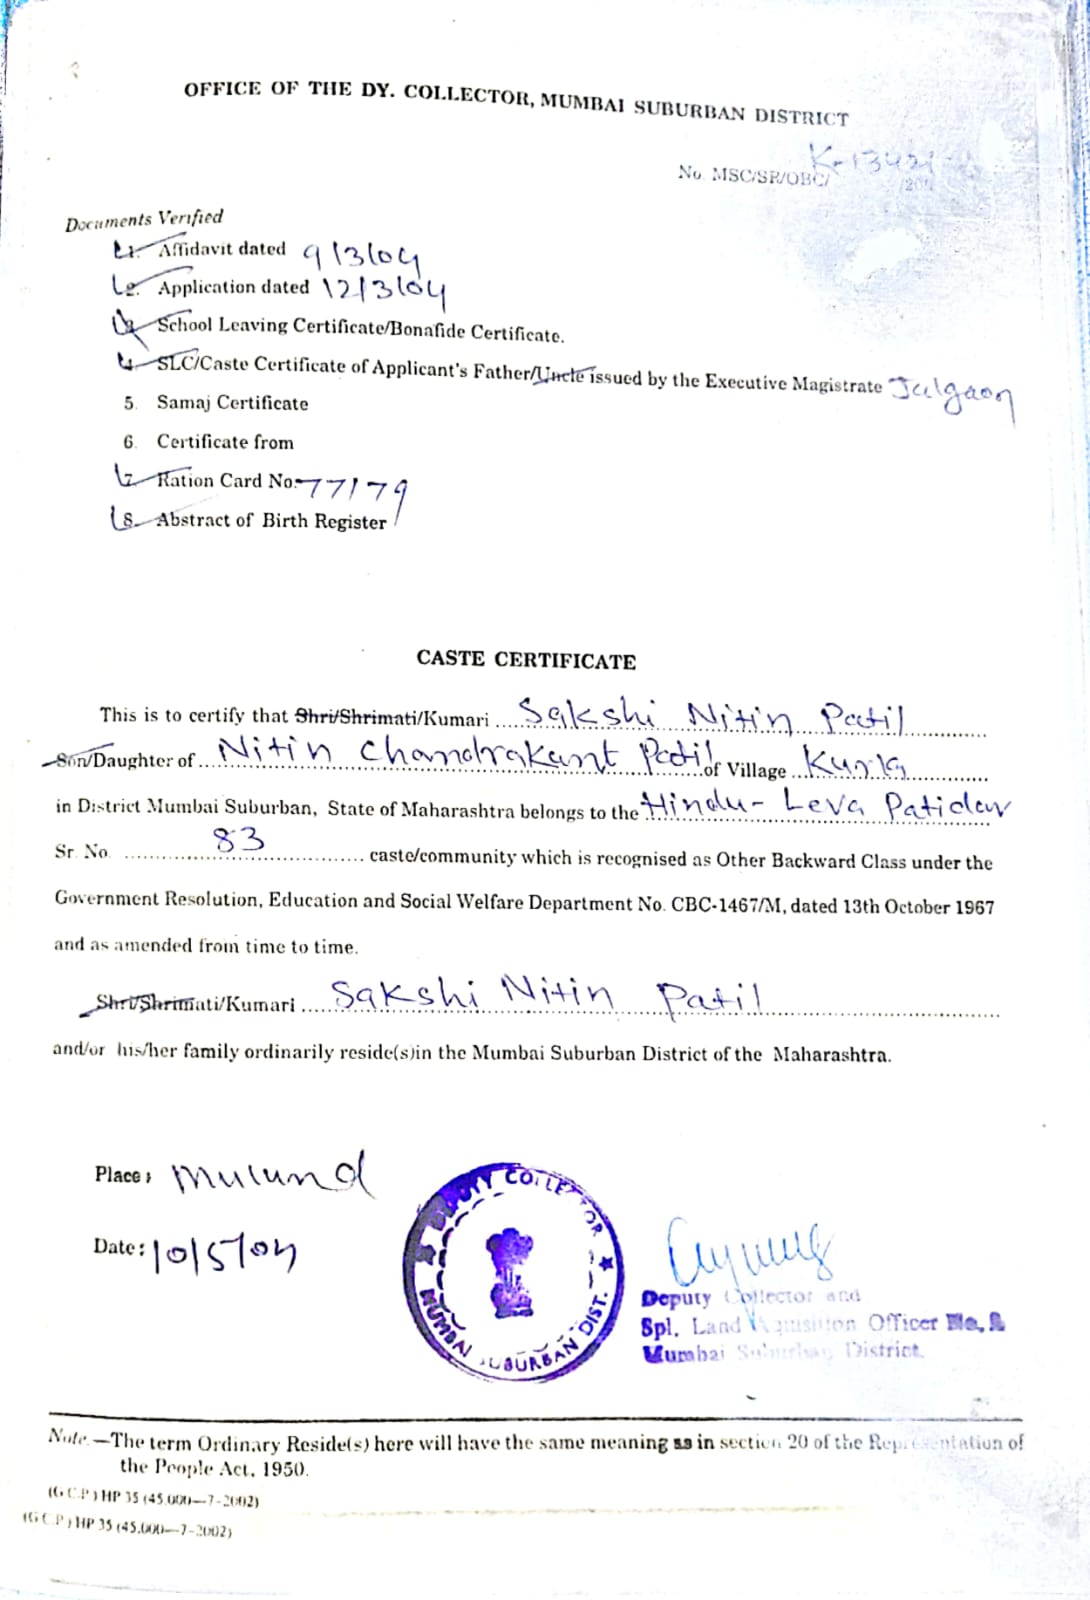 OFFICE OF THE DY. COLLECTOR, MUMBAI SUBURBAN DISTRICT
No. MSC/SR/OBC/ K-13421
Documents Verified
1. Affidavit dated 9/3/04
2. Application dated 12/3/04
3. School Leaving Certificate/Bonafide Certificate.
4. SLC/Caste Certificate of Applicant's Father/Uncle issued by the Executive Magistrate Jalgaon
5. Samaj Certificate
6. Certificate from
7. Ration Card No. 77179
8. Abstract of Birth Register
CASTE CERTIFICATE
This is to certify that Shri/Shrimati/Kumari Sakshi Nitin Patil
Son/Daughter of Nitin Chandrakant Patil of Village Kurla
in District Mumbai Suburban, State of Maharashtra belongs to the Hindu - Leva Patidar
Sr. No. 83 caste/community which is recognised as Other Backward Class under the
Government Resolution, Education and Social Welfare Department No. CBC-1467/M, dated 13th October 1967
and as amended from time to time.
Shri/Shrimati/Kumari Sakshi Nitin Patil
and/or his/her family ordinarily reside(s)in the Mumbai Suburban District of the Maharashtra.
Place : Mulund
Date : 10/5/04
DEPUTY COLLECTOR
MUMBAI SUBURBAN DIST.
Deputy Collector and
Spl. Land Acquisition Officer No.
Mumbai Suburban District.
Note.—The term Ordinary Reside(s) here will have the same meaning as in section 20 of the Representation of
the People Act, 1950.
(G.C.P.) HP 35 (45,000—7-2002)
(G.C.P.) HP 35 (45,000—7-2002)